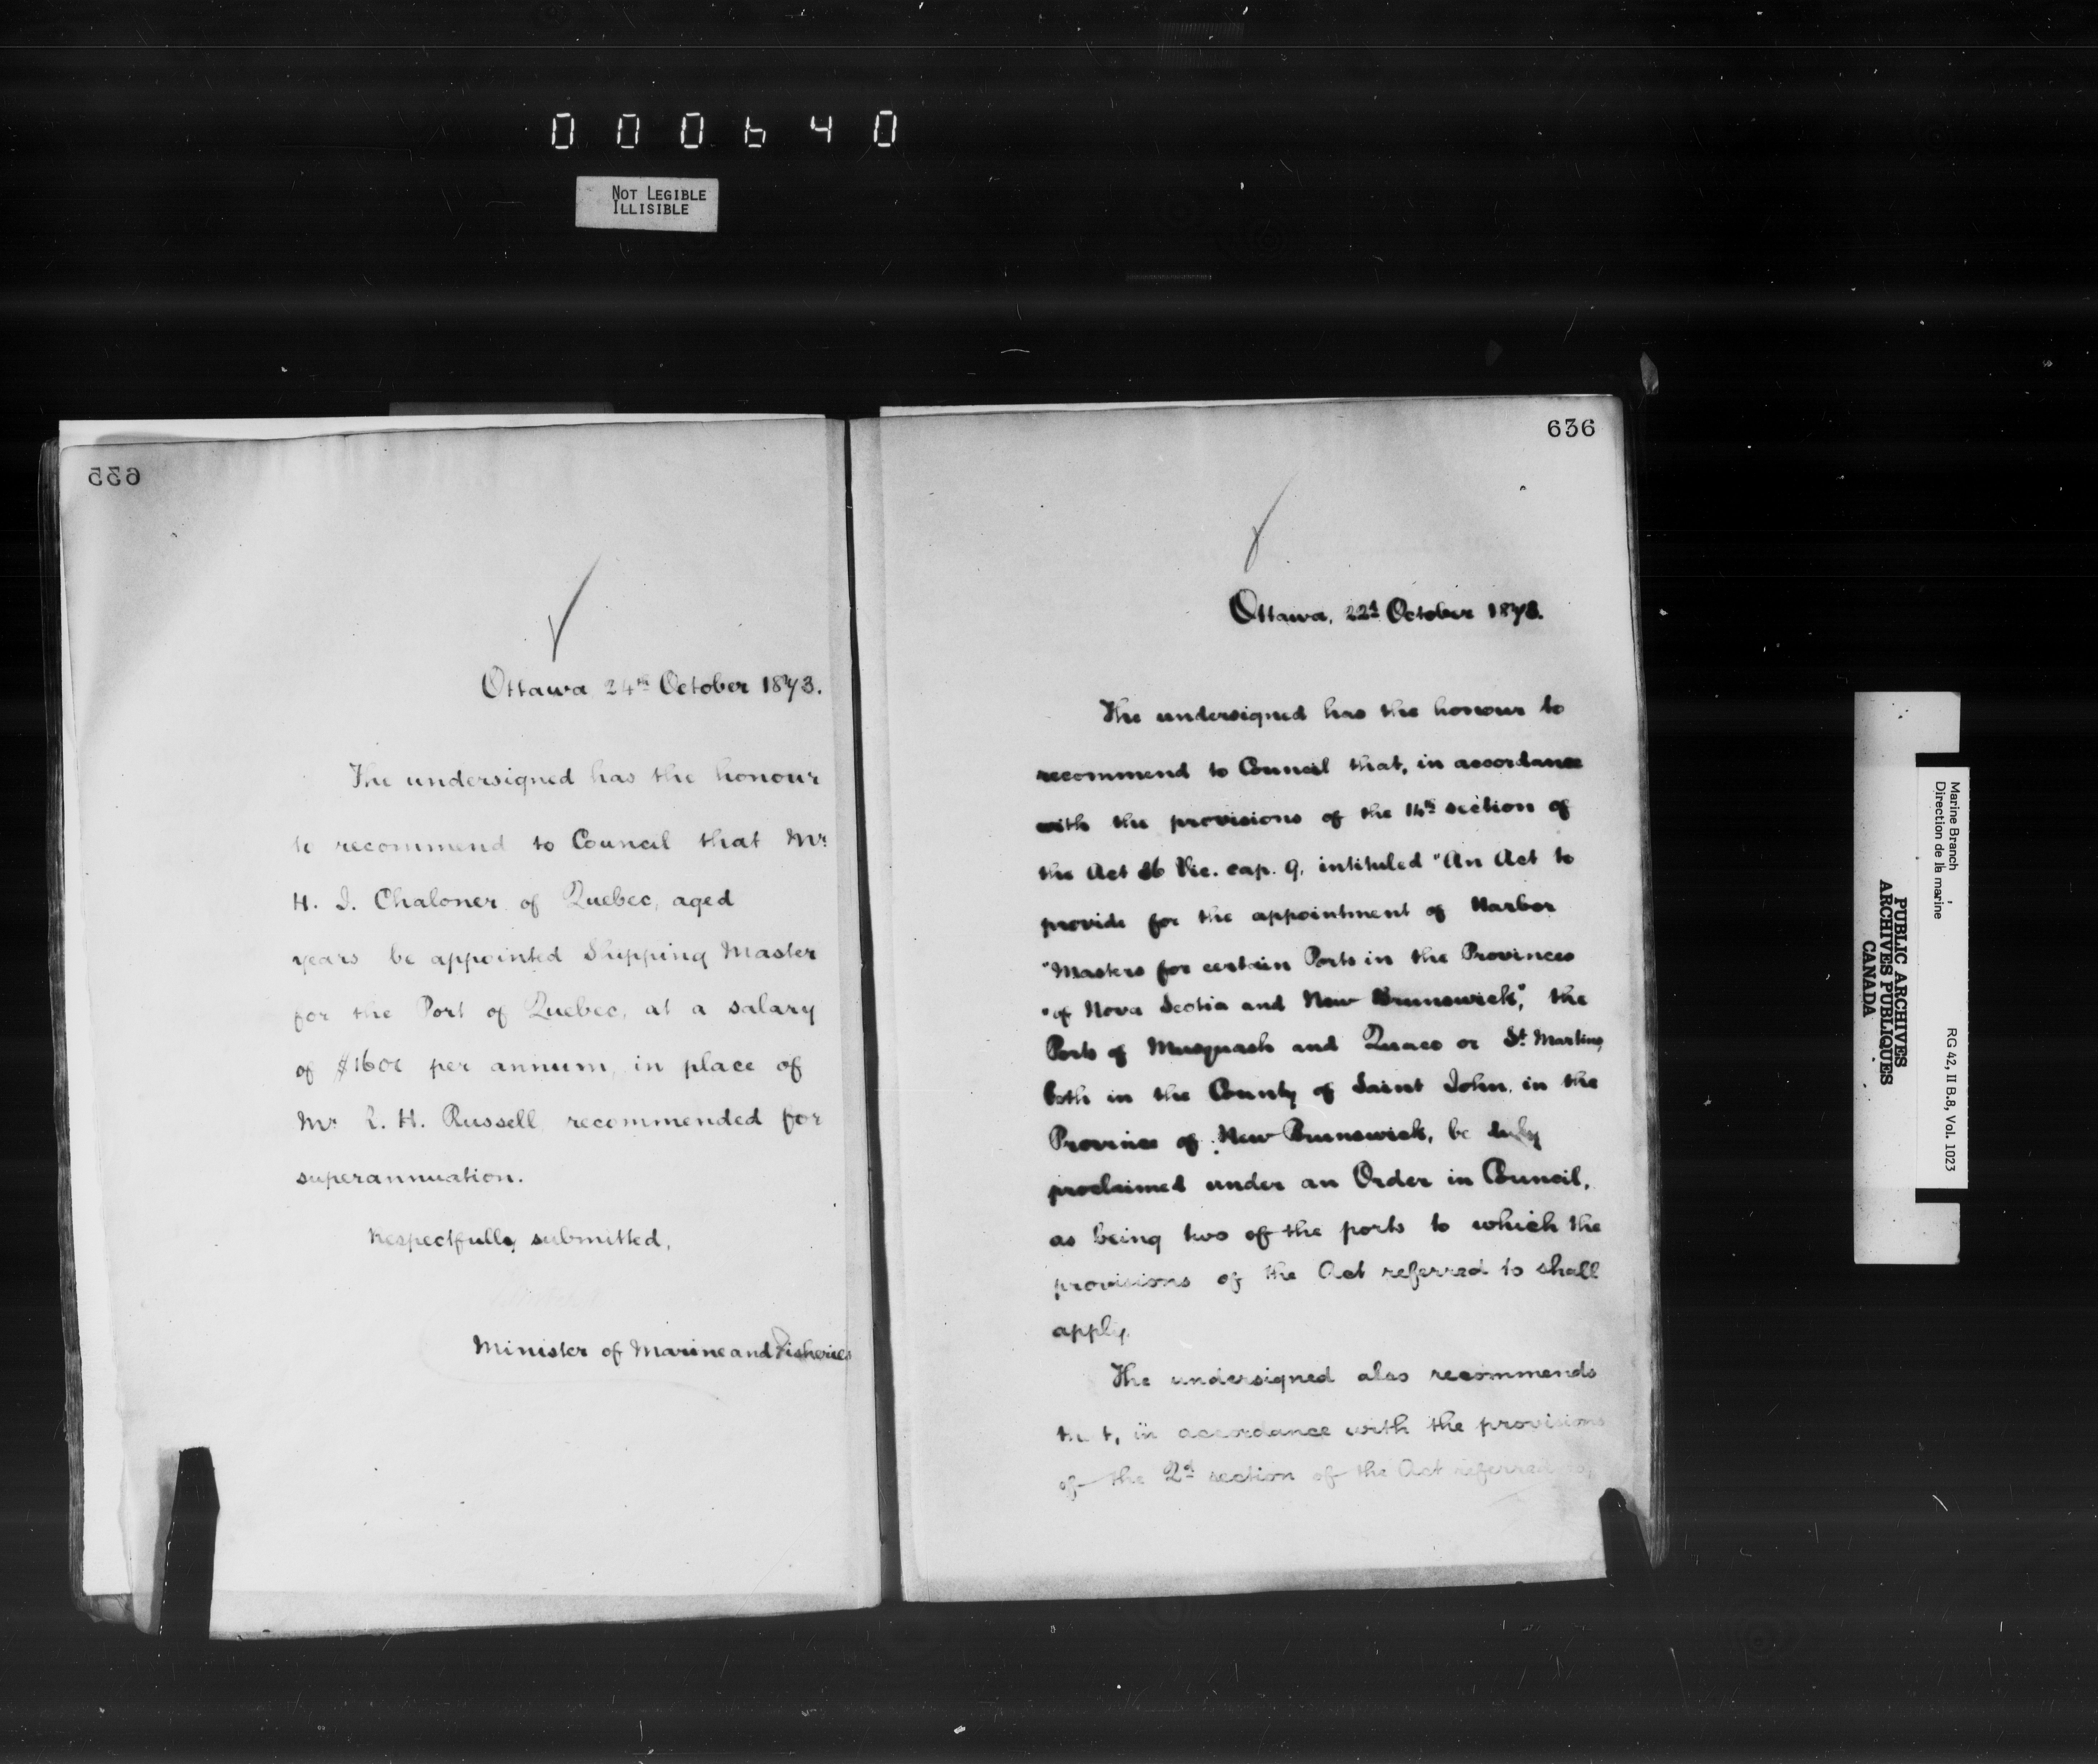 000640
NOT LEGIBLE
ILLISIBLE
635
Ottawa 24th October 1873.
The undersigned has the honour
to recommend to Council that Mr
H. I. Chaloner of Quebec, aged
years be appointed Shipping Master
for the Port of Quebec, at a salary
of $1600 per annum, in place of
Mr. L. H. Russell recommended for
superannuation.
Respectfully submitted,
Minister of Marine and Fisheries
636
Ottawa, 22d October 1873.
The undersigned has the honour to
recommend to Council that, in accordance
with the provisions of the 14th section of
the Act 36 Vic. cap. 9, intituled "An Act to
provide for the appointment of Harbor
"Masters for certain Ports in the Provinces
"of Nova Scotia and New Brunswick", the
Ports of Musquash and Quaco or St. Martins,
both in the County of Saint John, in the
Province of New Brunswick, be duly
proclaimed under an Order in Council,
as being two of the ports to which the
provisions of the Act referred to shall
apply.
The undersigned also recommends
that, in accordance with the provisions
of the 2d section of the Act referred to,
Marine Branch
Direction de la marine
RG 42, II B.8, Vol. 1023
PUBLIC ARCHIVES
ARCHIVES PUBLIQUES
CANADA